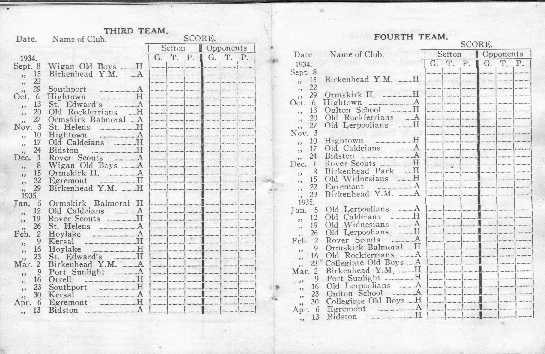 THIRD TEAM.
Date. Name of Club. SCORE.
Sefton Opponents
G. T. P. G. T. P.
1934.
Sept. 8 Wigan Old Boys H
,, 15 Birkenhead Y.M. A
,, 22
,, 29 Southport A
Oct. 6 Hightown H
,, 13 St. Edward's A
,, 20 Old Rockferrians H
,, 27 Ormskirk Balmoral A
Nov. 3 St. Helens H
,, 10 Hightown A
,, 17 Old Caldeians H
,, 24 Bidston H
Dec. 1 Rover Scouts A
,, 8 Wigan Old Boys A
,, 15 Ormskirk II. A
,, 22 Egremont H
,, 29 Birkenhead Y.M. H
1935.
Jan. 5 Ormskirk Balmoral H
,, 12 Old Caldeians A
,, 19 Rover Scouts H
,, 26 St. Helens A
Feb. 2 Hoylake A
,, 9 Kersal H
,, 16 Hoylake H
,, 23 St. Edward's H
Mar. 2 Birkenhead Y.M. A
,, 9 Port Sunlight A
,, 16 Orrell H
,, 23 Southport H
,, 30 Kersal A
Apr. 6 Egremont H
,, 13 Bidston A
FOURTH TEAM.
SCORE.
Date Name of Club. Sefton Opponents
G. T. P. G. T. P.
1934.
Sept. 8
,, 15 Birkenhead Y.M. H
,, 22
,, 29 Ormskirk II. H
Oct. 6 Hightown A
,, 13 Oulton School H
,, 20 Old Rockferrians A
,, 27 Old Lerpoolians H
Nov. 3
,, 10 Hightown H
,, 17 Old Caldeians A
,, 24 Bidston A
Dec. 1 Rover Scouts H
,, 8 Birkenhead Park H
,, 15 Old Widnesians H
,, 22 Egremont A
,, 29 Birkenhead Y.M. A
1935.
Jan. 5 Old Lerpoolians A
,, 12 Old Caldeians H
,, 19 Old Widnesians A
,, 26 Old Lerpoolians H
Feb. 2 Rover Scouts A
,, 9 Ormskirk Balmoral H
,, 16 Old Rockferrians A
,, Collegiate Old Boys A
Mar. 2 Birkenhead Y.M. H
,, 9 Port Sunlight H
,, 16 Old Lerpoolians A
,, 23 Oulton School A
,, 30 Collegiate Old Boys H
Apr. 6 Egremont A
,, 13 Bidston H